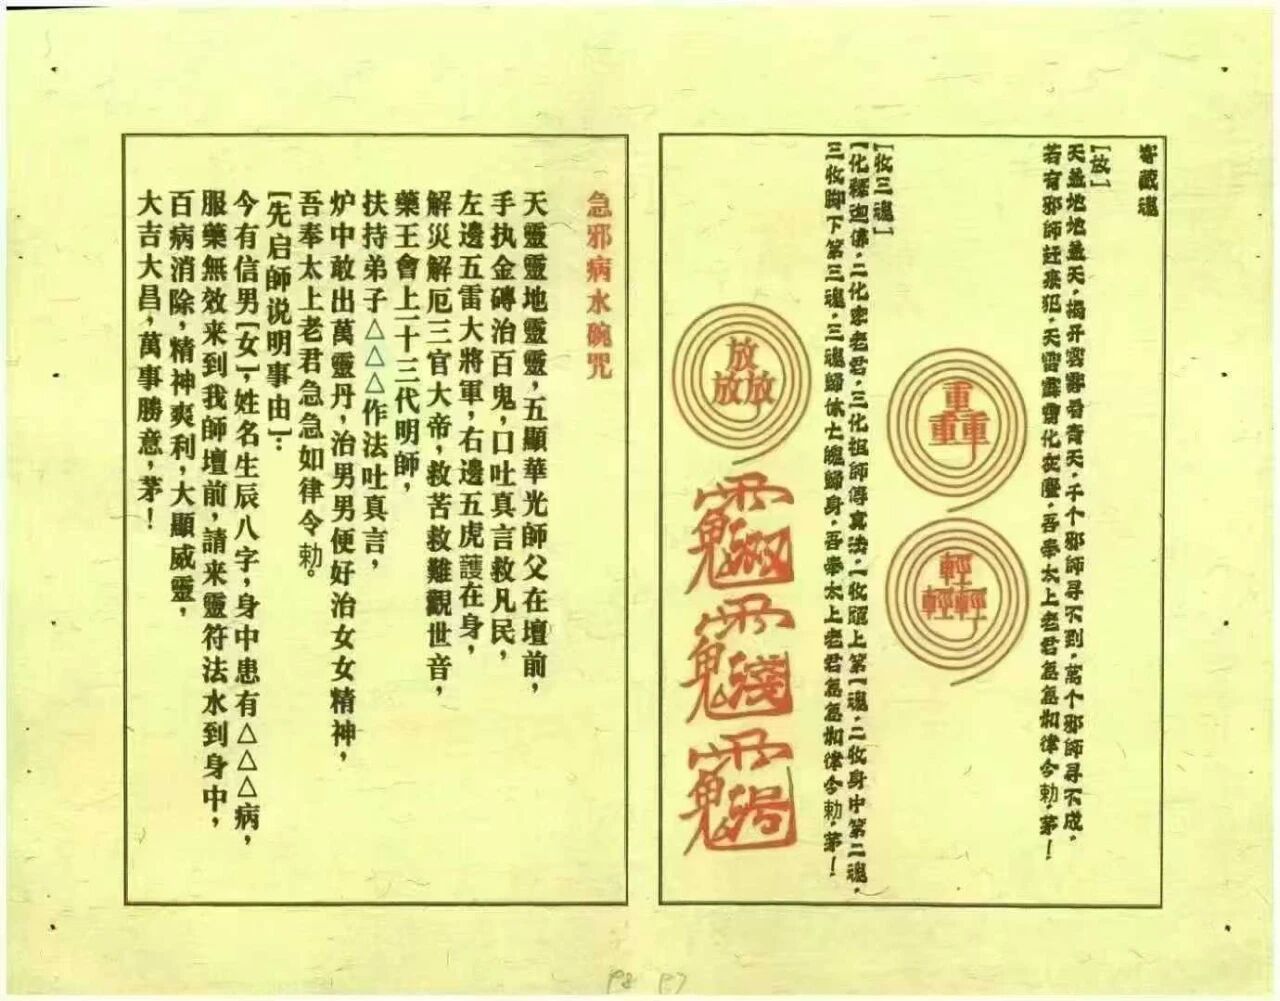 寄藏魂
[放]
天蓋地地蓋天，揭開雲霧看青天，千个邪師尋不到，萬个邪師尋不成，
若有邪師赶來犯，天雷霹靂化灰塵，吾奉太上老君急急如律令勅，茅！
重
重重
輕
輕輕
[收三魂]
一化釋迦佛，二化李老君，三化祖師傳真法，一收頭上第一魂，二收身中第二魂，
三收脚下第三魂，三魂歸体七魄歸身，吾奉太上老君急急如律令勅，茅！
放
放放
急邪病水碗咒
天靈靈地靈靈，五顯華光師父在壇前，
手执金磚治百鬼，口吐真言救凡民，
左邊五雷大將軍，右邊五虎護在身，
解災解厄三官大帝，救苦救難觀世音，
藥王會上二十三代明師，
扶持弟子△△△作法吐真言，
炉中敢出萬靈丹，治男男便好治女女精神，
吾奉太上老君急急如律令勅。
[先启師说明事由]：
今有信男[女]，姓名生辰八字，身中患有△△△病，
服藥無效来到我師壇前，請来靈符法水到身中，
百病消除，精神爽利，大顯威靈，
大吉大昌，萬事勝意，茅！
P8 P7